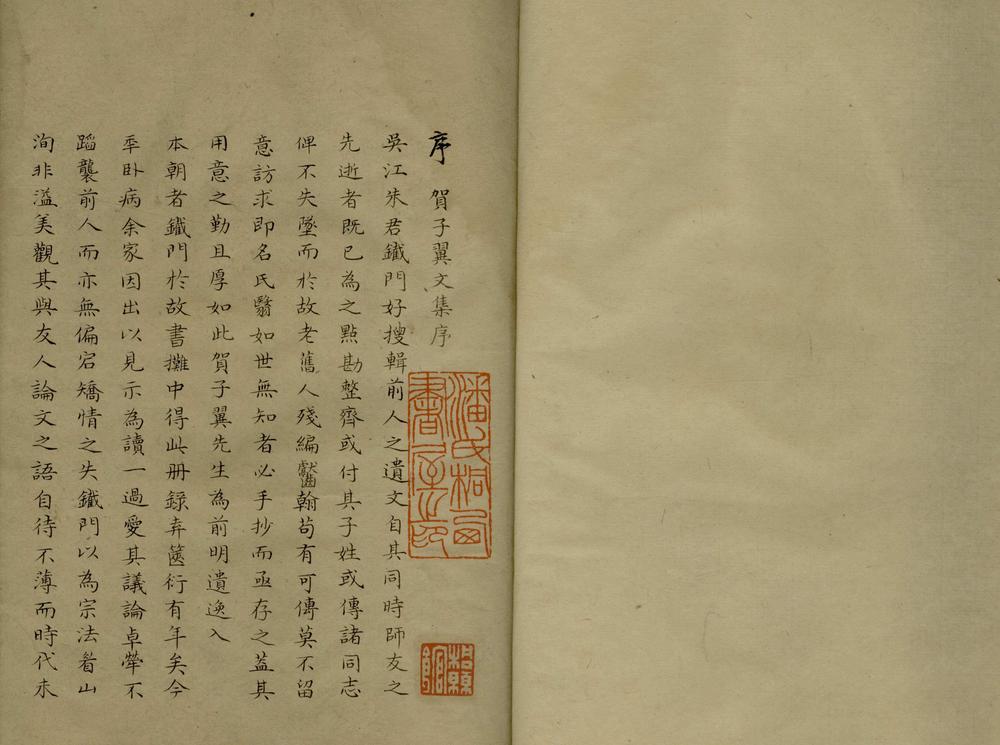 序 賀子翼文集序
吳江朱君鐵門好搜輯前人之遺文自其同時師友之
先逝者既已為之點勘整齊或付其子姓或傳諸同志
俾不失墜而於故老舊人殘編齾翰苟有可傳莫不留
意訪求即名氏翳如世無知者必手抄而亟存之蓋其
用意之勤且厚如此賀子翼先生為前明遺逸入
本朝者鐵門於故書攤中得此冊錄弆篋衍有年矣今
年臥病余家因出以見示為讀一過愛其議論卓犖不
蹈襲前人而亦無偏宕矯情之失鐵門以為宗法眉山
洵非溢美觀其與友人論文之語自待不薄而時代未
潘氏桐西書屋之印